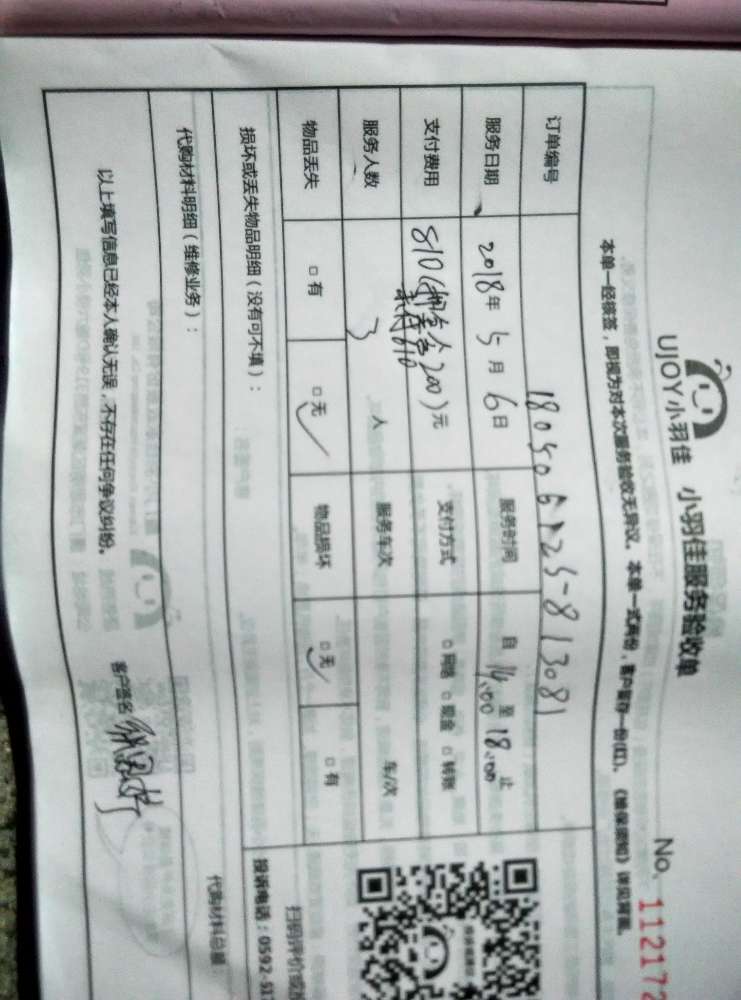 UJOY小羽佳 小羽佳服务验收单
No. 112172
本单一经核签，即视为对本次服务验收无异议。本单一式两份，客户留存一份(红)。《维保须知》详见背面。
订单编号 180506125-813081
服务日期 2018年5月6日 服务时间 自14:00至18:00止
支付费用 810(押金200)元 支付方式 □网络 □现金 □转账
610
服务人数 3人 服务车次 车/次
物品丢失 □有 □无✓ 物品损坏 □无✓ □有
损坏或丢失物品明细（没有可不填）：
代购材料明细（维修业务）： 代购材料总额：
以上填写信息已经本人确认无误，不存在任何争议纠纷。 客户签名
扫码评价或
投诉电话：0592-51